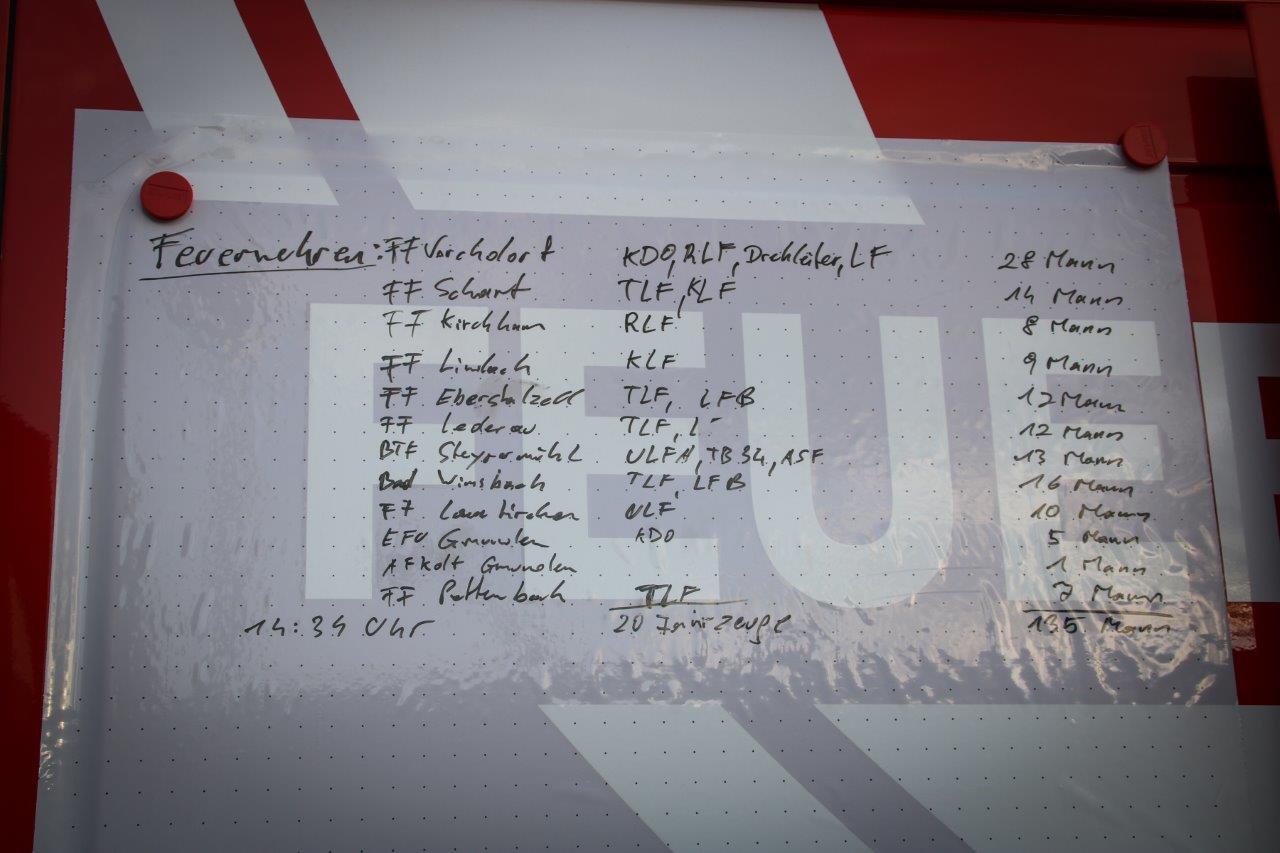 Feuerwehren: FF Vorchdorf KDO, RLF, Drehleiter, LF 28 Mann
FF Scharf TLF, KLF 14 Mann
FF Kirchham RLF 8 Mann
FF Lindach KLF 9 Mann
FF Eberstalzell TLF, LFB 12 Mann
FF Lederau TLF, L 12 Mann
BTF Steyrermühl ULFA, TB34, ASF 13 Mann
Bad Wimsbach TLF, LFB 16 Mann
FF Laakirchen ULF 10 Mann
EFU Gmunden KDO 5 Mann
AFKdt Gmunden 1 Mann
FF Pettenbach TLF 7 Mann
14:34 Uhr 20 Fahrzeuge 135 Mann
FEUE